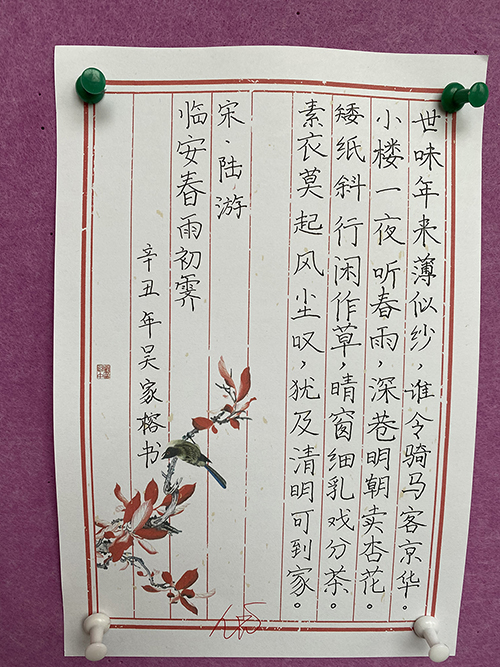 世味年来薄似纱，谁令骑马客京华。
小楼一夜听春雨，深巷明朝卖杏花。
矮纸斜行闲作草，晴窗细乳戏分茶。
素衣莫起风尘叹，犹及清明可到家。
宋·陆游
临安春雨初霁
辛丑年吴家榕书